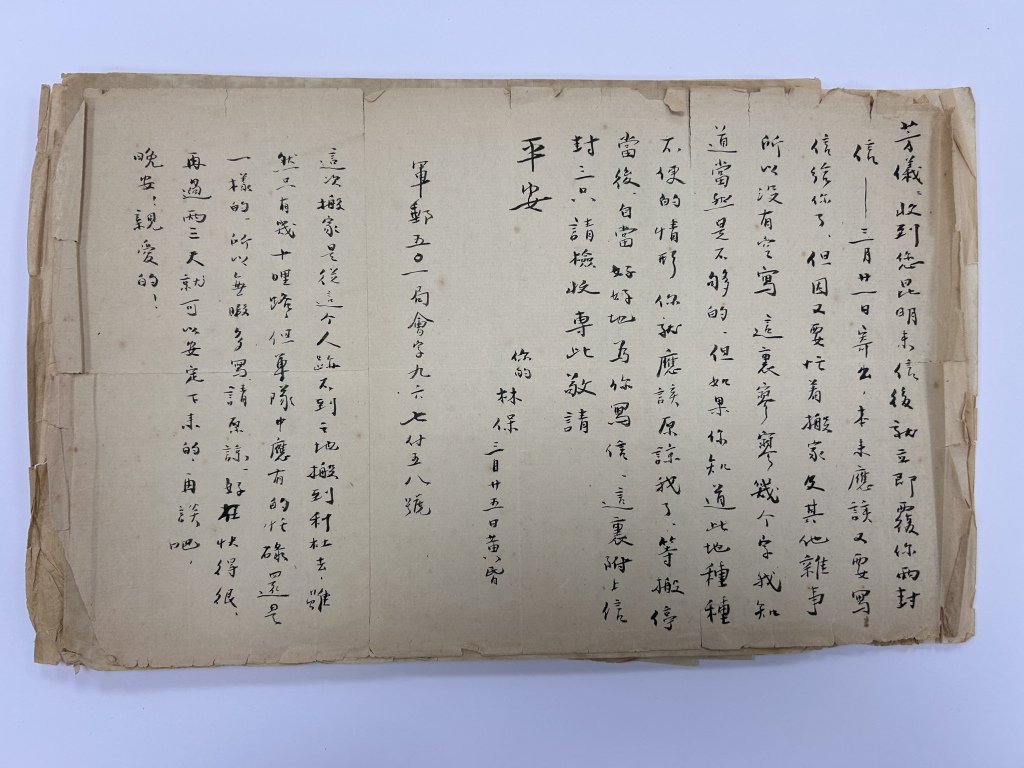 芳儀：收到您昆明来信後就立即覆你兩封
信——三月廿一日寄出，本来應該又要寫
信給你了，但因又要忙着搬家及其他雜事
所以没有空寫 這裏寥寥幾个字我知
道當然是不够的，但如果你知道此地種種
不便的情形 你就應該原諒我了，等搬停
當後，自當好好地為你寫信，這裏附上信
封三只請檢收專此敬請
平安
你的 林保
三月廿五日黄昏
軍郵五〇一局會字九六七付五八號
這次搬家是從這个人跡不到之地搬到利杜去，雖
然只有幾十哩路但軍隊中應有的忙碌還是
一樣的，所以無暇多寫請原諒，好在快得很、
再過兩三天就可以安定下来的，再談吧，
晚安，親愛的！